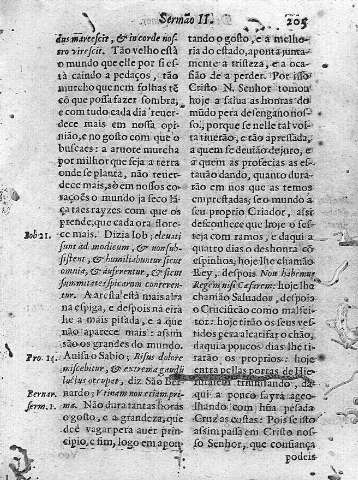 Sermão II. 205
dus marescit, & in corde nos-
tro virescit. Tão velho està
o mundo que elle por si es-
tà caindo a pedaços, tão
murcho que nem folhas tè
cõ que possa fazer sombra,
e com tudo cada dia reuer-
dece mais em nossa opi-
nião, e no gosto com que o
buscaes: a aruore murcha
por milhor que seja a terra
onde se planta, não reuer-
dece mais, sô em nossos co-
raçoẽs o mundo ja seco lã-
ça taes rayzes com que os
prende, que cada ora flore-
ce mais. Dizia Iob: eleuati
Iob 21.
sunt ad modicum, & non sub-
sistent, & humiliabuntur sicut
omnia, & auferentur, & sicut
summitates spicarum conteren-
tur. A aresta està mais alta
na espiga, e despois na eira
he a mais pisada, e a que
não aparece mais: assim
são os grandes do mundo.
Pro. 14.
Auisa o Sabio; Risus dolore
miscebitur, & extrema gaudii
luctus occupat, diz São Ber-
Bernar.
nardo; Vtinam non etiam pri-
serm. 1.
ma. Não dura tantas horas
o gosto, e a grandeza, que
dè vagar pera auer prin-
cipio, e fim, logo em apon-
tando o gosto, e a melho-
ria do estado, aponta junta-
mente a tristeza, e a oca-
sião de a perder. Por isso
Cristo N. Senhor tomou
hoje a salua as honras do
mũdo pera desengano nos-
so, porque se nelle tal vol-
ta tiuerão, e tão apressada,
a quem se deuião de juro, e
a quem as profecias as es-
tauão dando, quanto dura-
rão em nos que as temos
emprestadas; se o mundo a
seu proprio Criador, assi
desconhece que hoje o fes-
teja com ramos, e daqui a
quatro dias o deshonra cõ
espinhos, hoje lhe chamão
Rey, despois Non habemus
Regem nisi Cæsarem: hoje lhe
chamão Saluador, despois
o Crucifixão como mal-
feitor: hoje tirão os seus ves-
tidos pera alcatifar o chão,
daqui a poucos dias lhe ti-
rarão os proprios: hoje
entra pellas portas de Hie
rusalem triumfando, da-
qui a pouco sayra ageo-
lhando com hũa pesada
Cruz as costas: Pois se isto
assim passa em Cristo nos-
so Senhor, que confiança
podeis